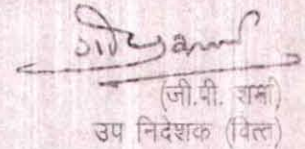 (जी.पी. शर्मा)
उप निदेशक (वित्त)